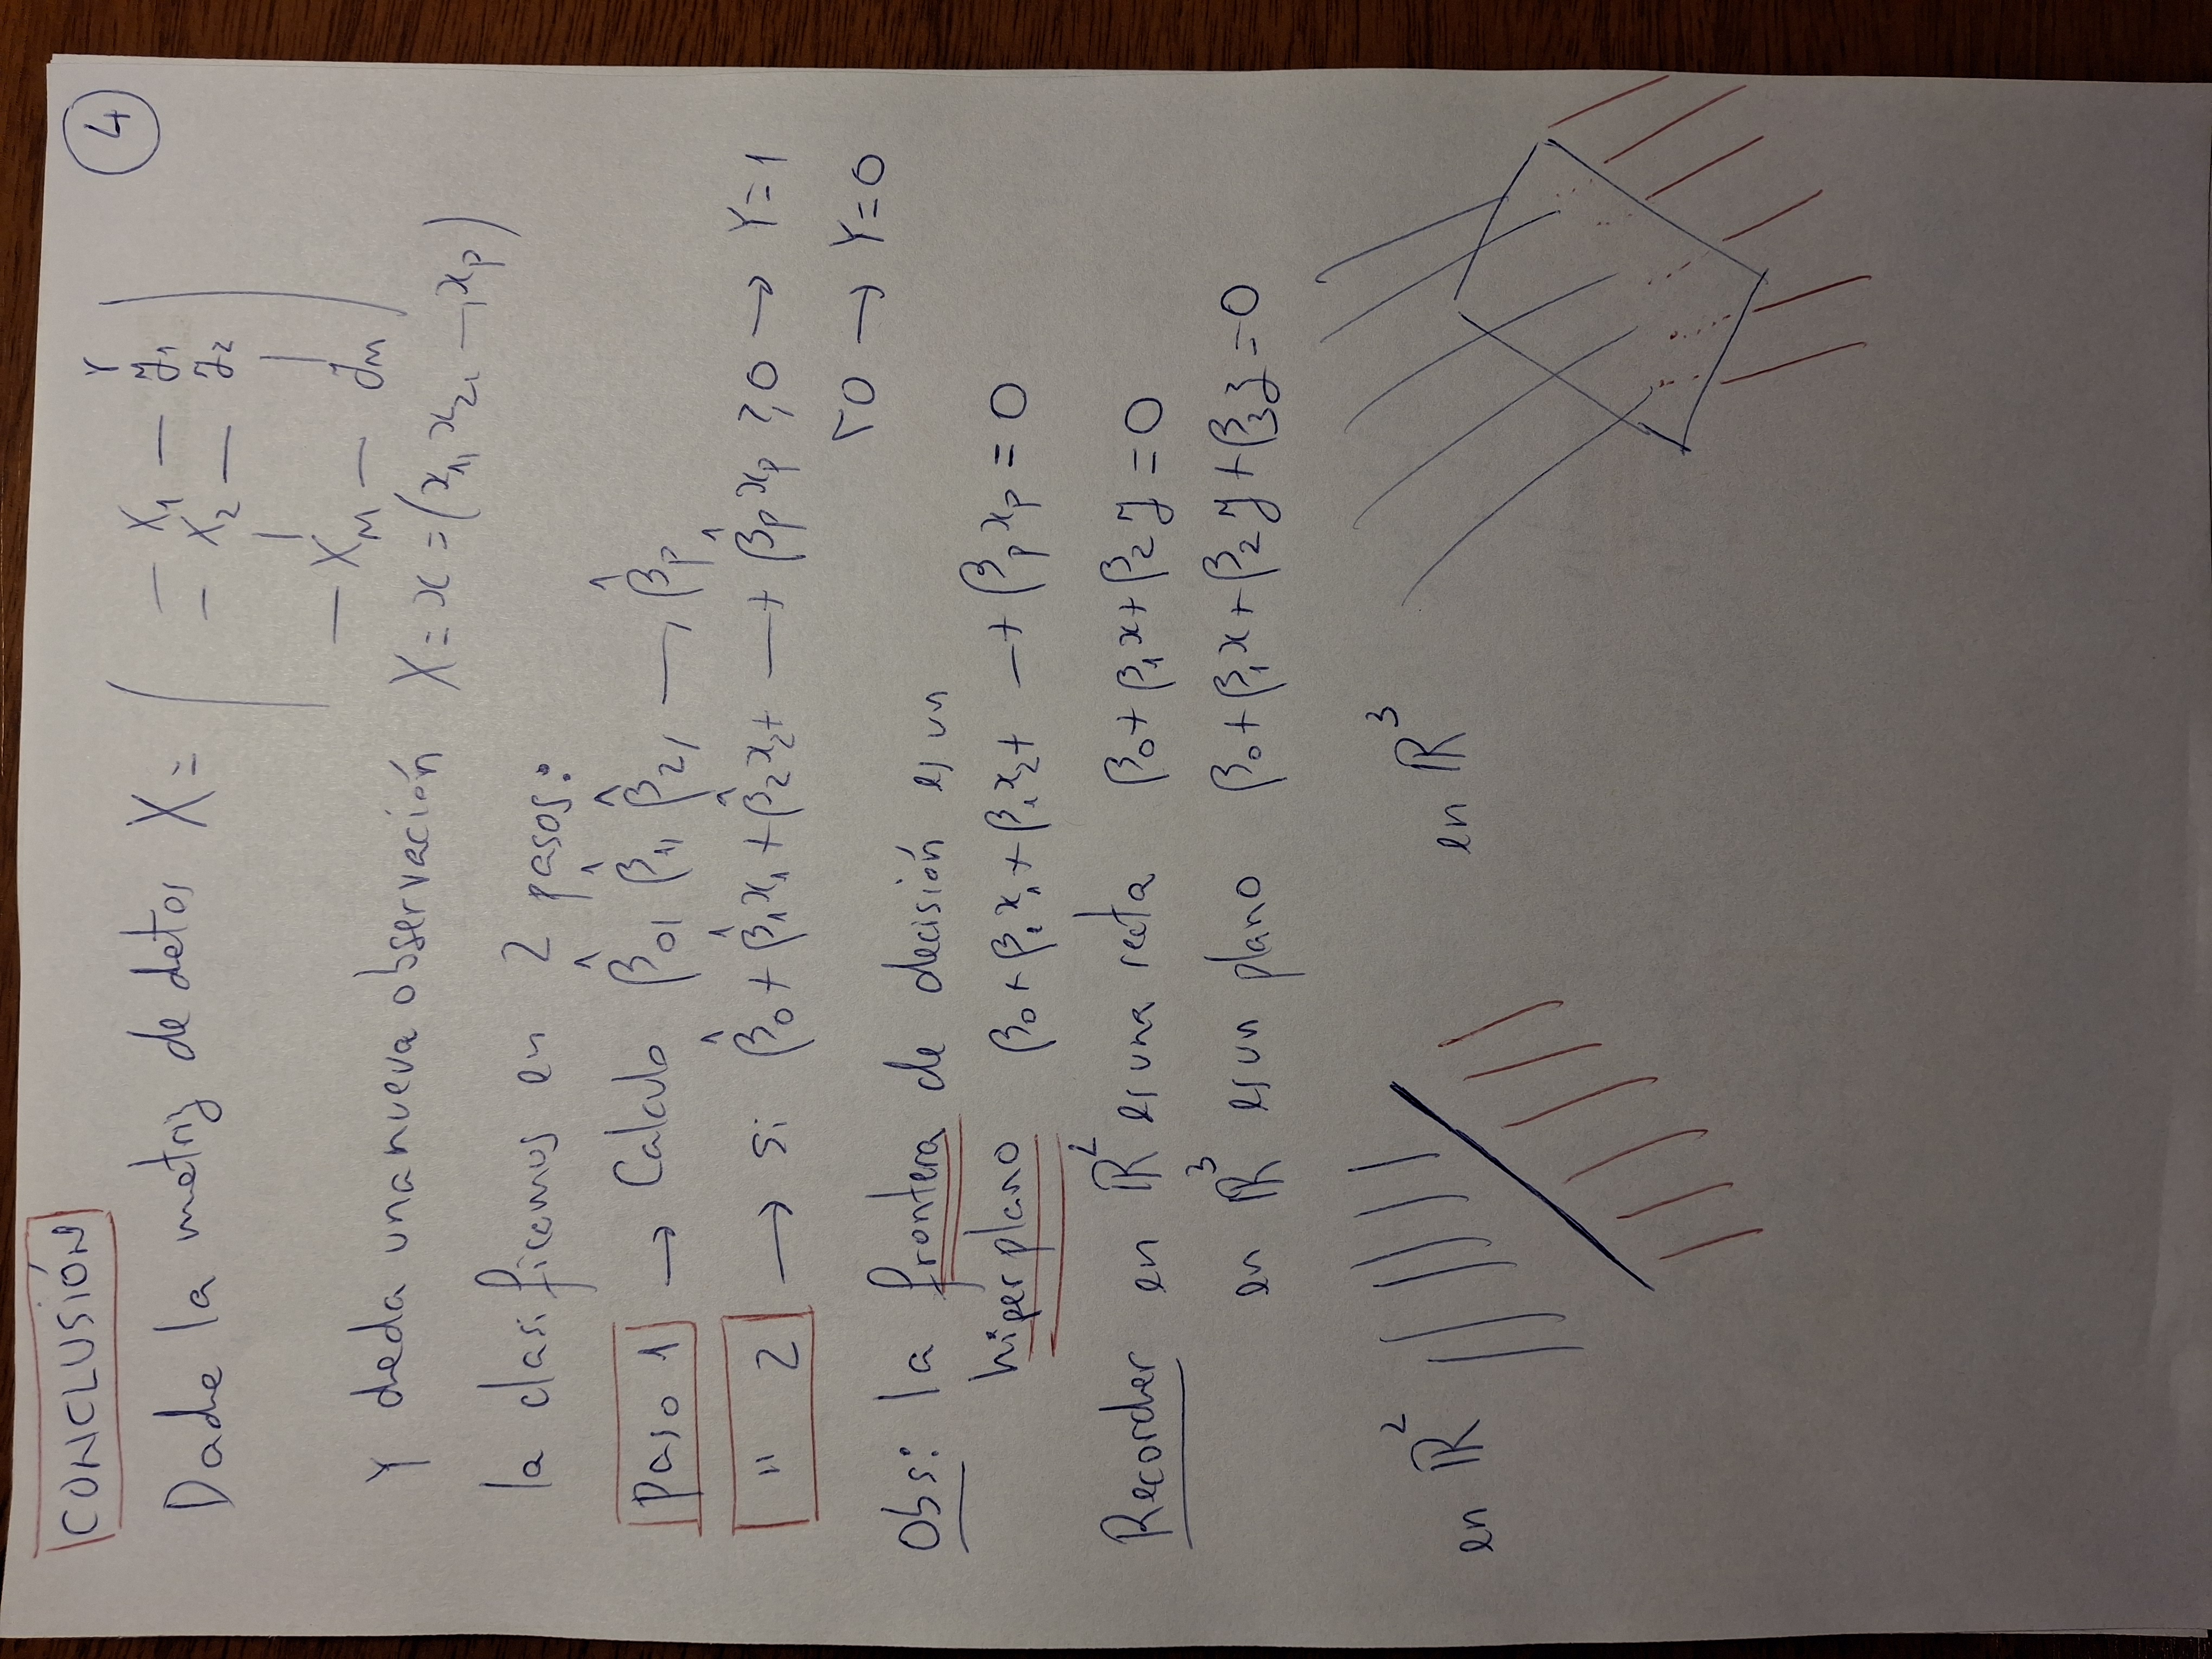 CONCLUSIÓN
4
Dada la matriz de datos X = ( Y
— X₁ — y₁
— X₂ — y₂
| |
— Xₙ — yₙ )
Y dada una nueva observación X = x = (x₁, x₂, —, xₚ)
la clasificamos en 2 pasos:
Paso 1 → Calculo β̂₀, β̂₁, β̂₂, —, β̂ₚ
" 2 → si β̂₀ + β̂₁x₁ + β̂₂x₂ + — + β̂ₚxₚ ≥ 0 → Y = 1
< 0 → Y = 0
Obs: la frontera de decisión es un
hiperplano β₀ + β₁x₁ + β₁x₂ + — + βₚxₚ = 0
Recordar en ℝ² es una recta β₀ + β₁x + β₂y = 0
en ℝ³ es un plano β₀ + β₁x + β₂y + β₃z = 0
en ℝ² en ℝ³